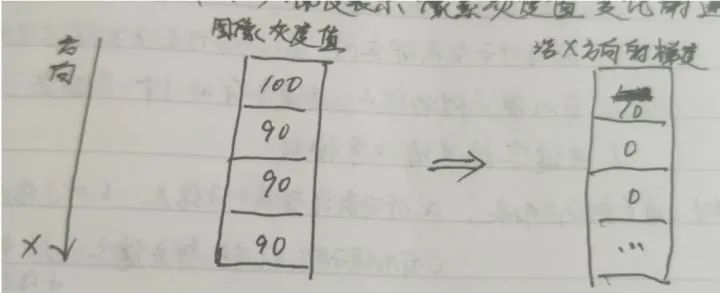 梯度表示像素灰度值变化的速
图像灰度值
沿X方向的梯度
方向
X
100
90
90
90
⇒
10
0
0
...